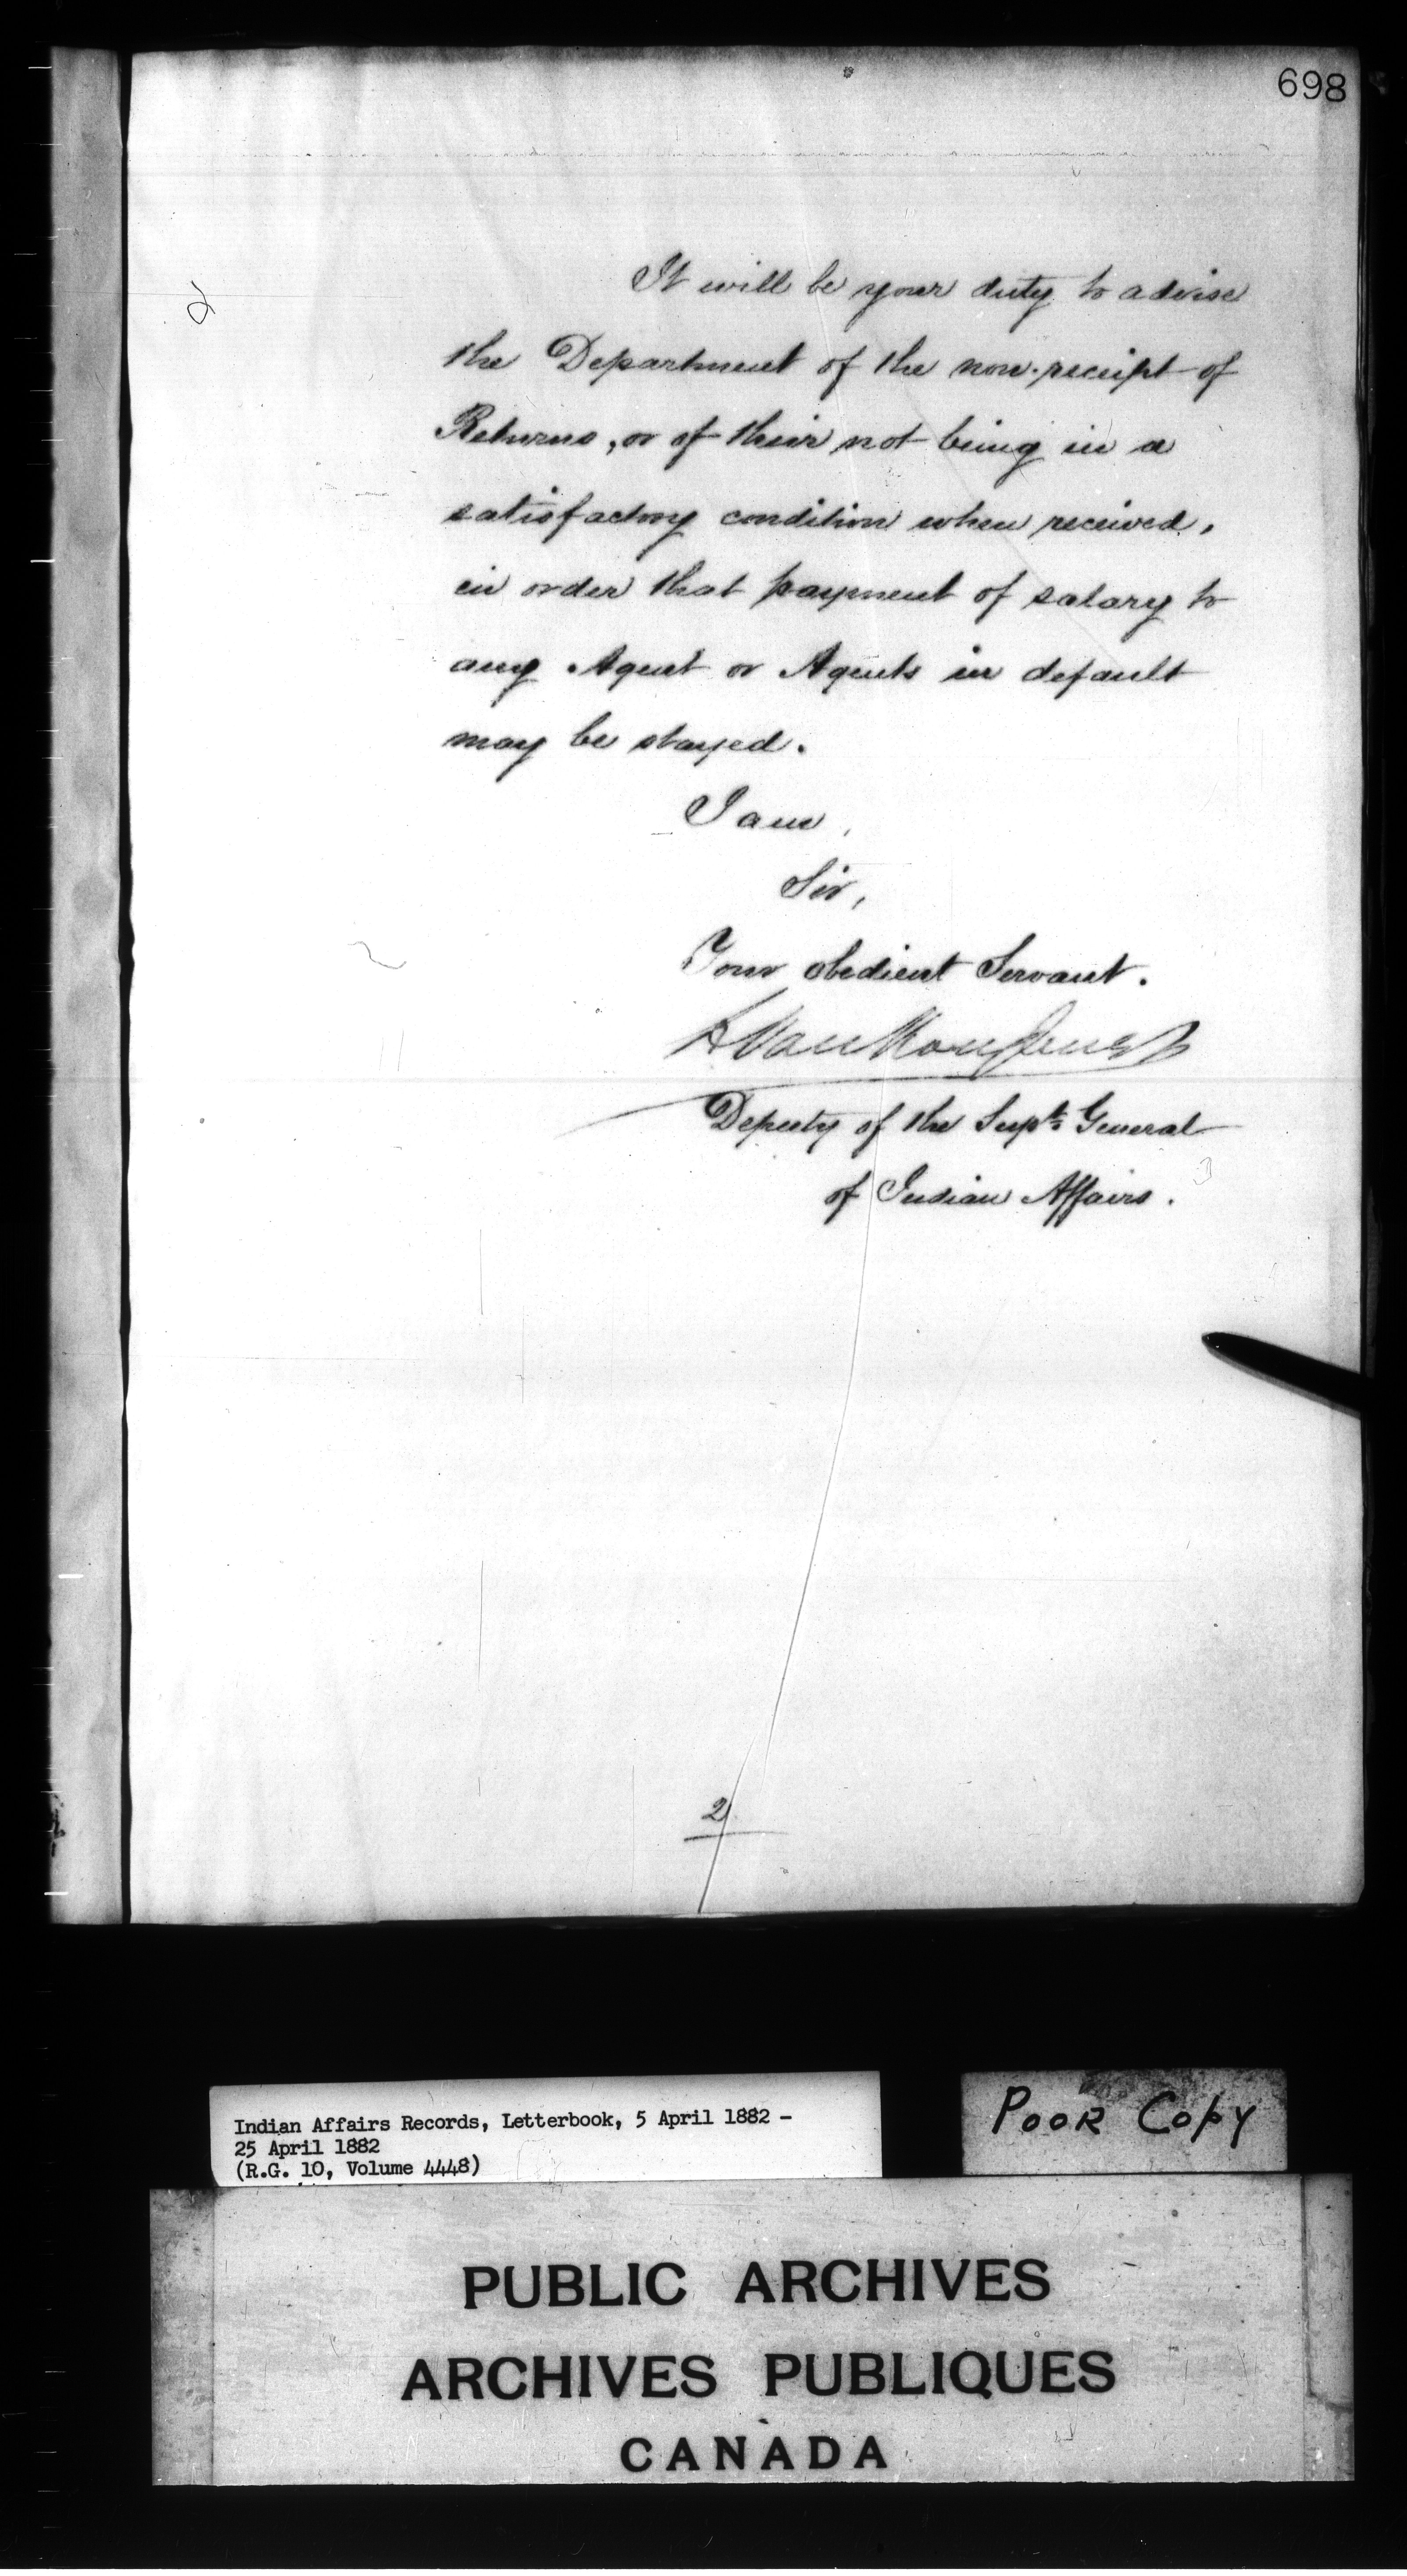 698
It will be your duty to advise
the Department of the non-receipt of
Returns, or of their not being in a
satisfactory condition when received,
in order that payment of salary to
any Agent or Agents in default
may be stayed.
I am,
Sir,
Your obedient Servant.
L VanKoughnet
Deputy of the Supt. General
of Indian Affairs.
2
Indian Affairs Records, Letterbook, 5 April 1882 -
25 April 1882
(R.G. 10, Volume 4448)
POOR COPY
PUBLIC ARCHIVES
ARCHIVES PUBLIQUES
CANADA